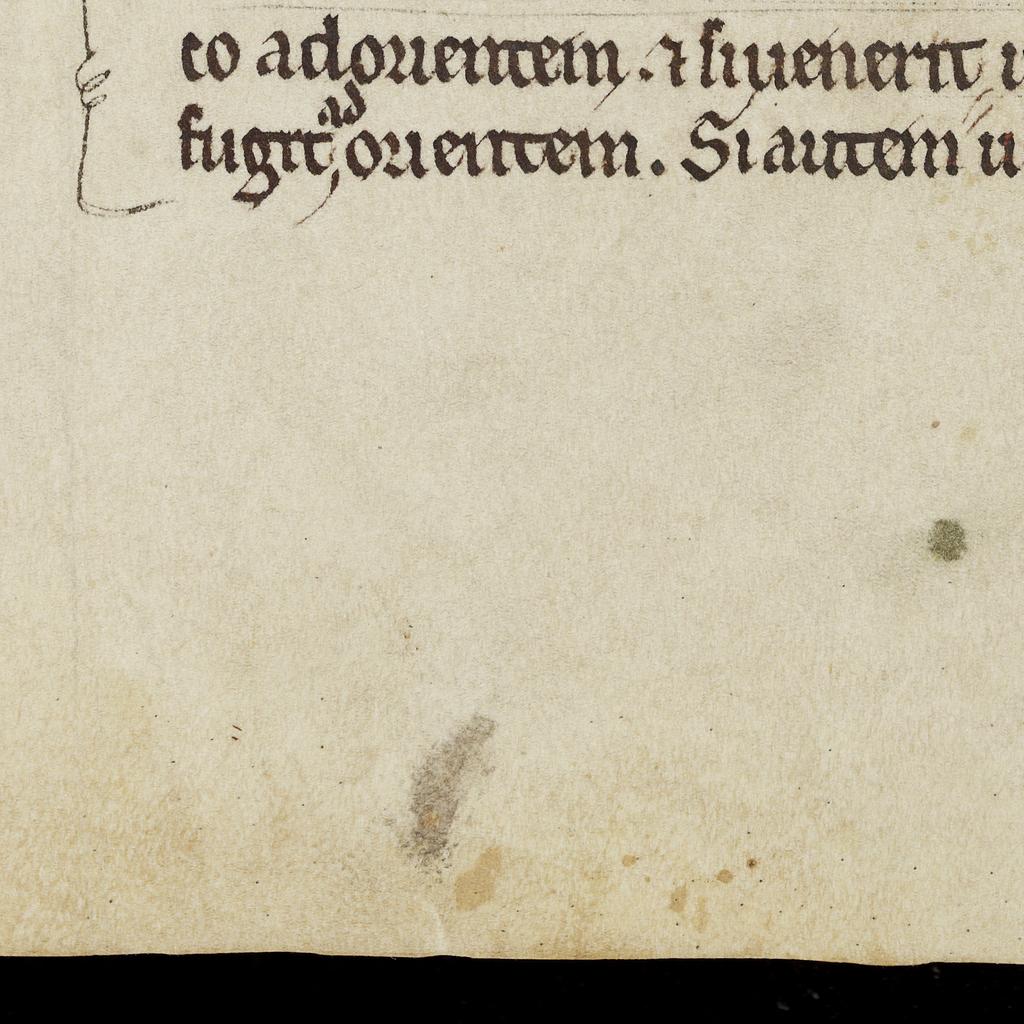 co ad orientem. ⁊ si uenerit
fugit ad orientem. Si autem